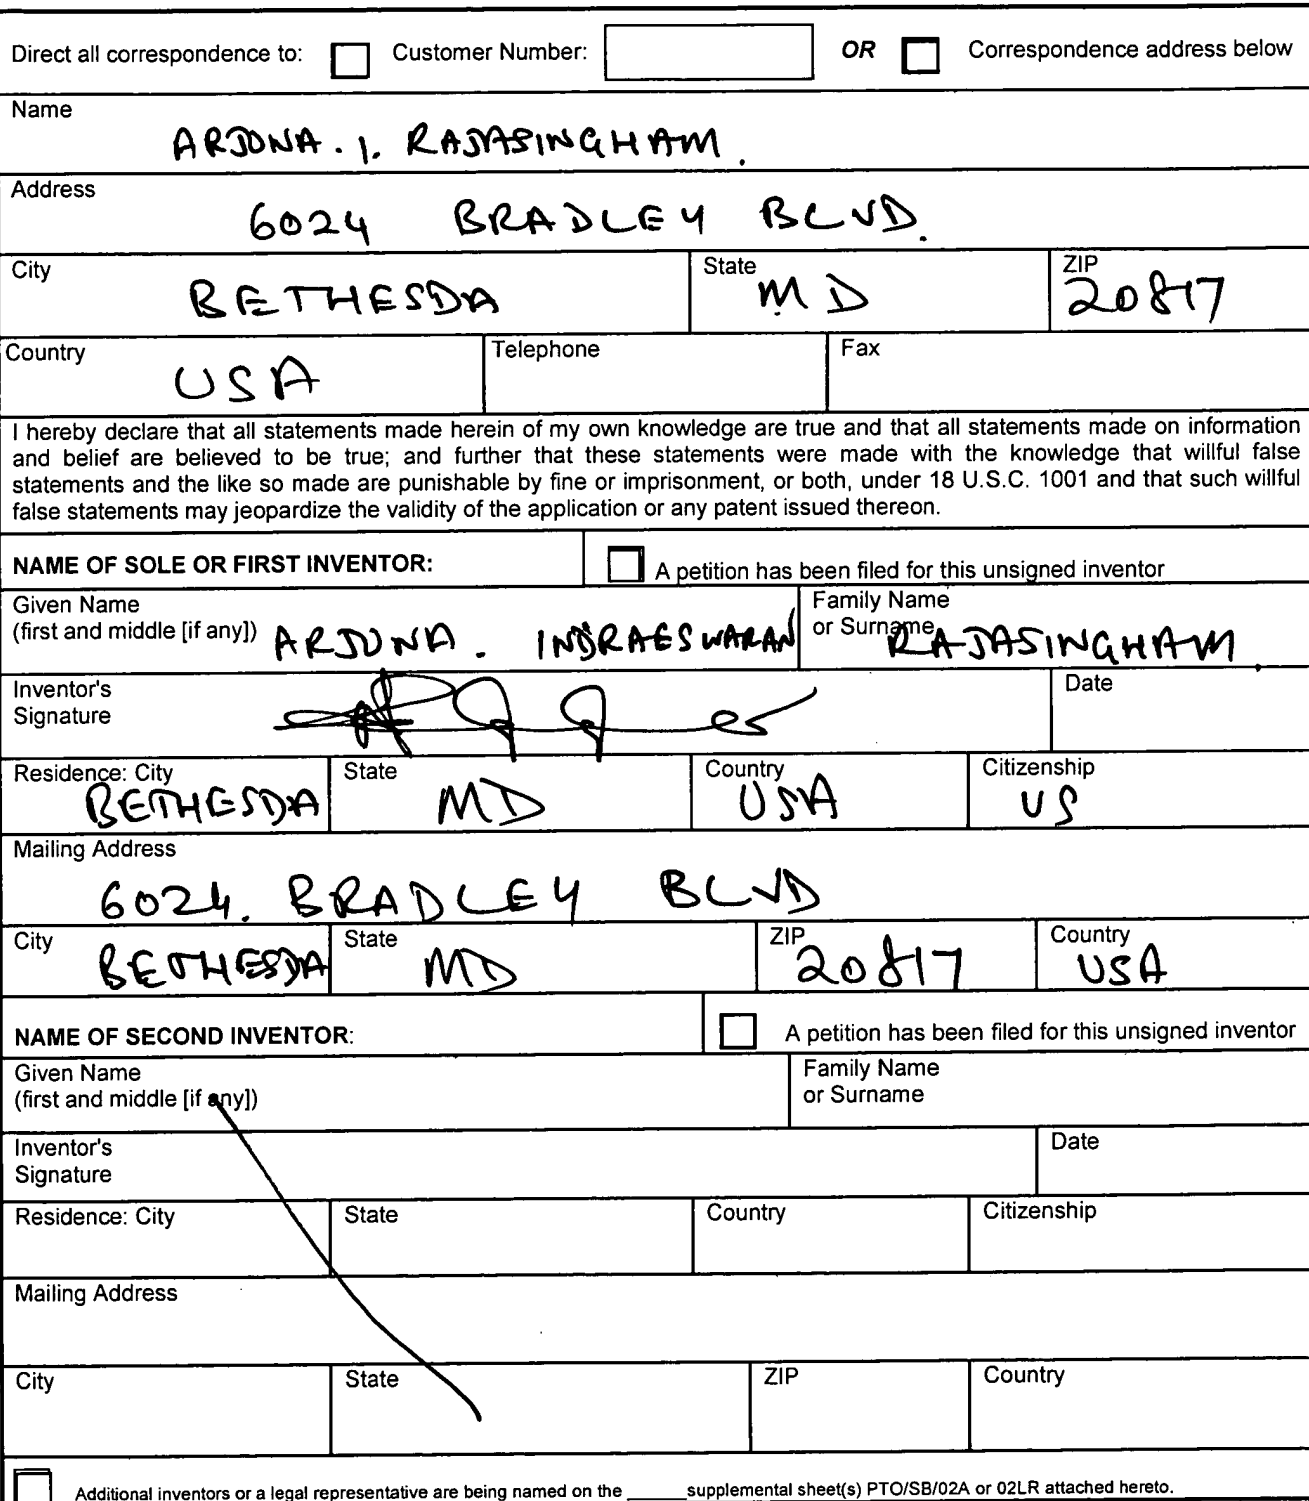 Direct all correspondence to: Customer Number: OR Correspondence address below
Name
ARJUNA. I. RAJASINGHAM.
Address
6024 BRADLEY BLVD.
City State ZIP
BETHESDA MD 20817
Country Telephone Fax
USA
I hereby declare that all statements made herein of my own knowledge are true and that all statements made on information
and belief are believed to be true; and further that these statements were made with the knowledge that willful false
statements and the like so made are punishable by fine or imprisonment, or both, under 18 U.S.C. 1001 and that such willful
false statements may jeopardize the validity of the application or any patent issued thereon.
NAME OF SOLE OR FIRST INVENTOR: A petition has been filed for this unsigned inventor
Given Name Family Name
(first and middle [if any]) ARJUNA. INDRAESWARAN or Surname RAJASINGHAM.
Inventor's Date
Signature
Residence: City State Country Citizenship
BETHESDA MD USA US
Mailing Address
6024. BRADLEY BLVD
City State ZIP Country
BETHESDA MD 20817 USA
NAME OF SECOND INVENTOR: A petition has been filed for this unsigned inventor
Given Name Family Name
(first and middle [if any]) or Surname
Inventor's Date
Signature
Residence: City State Country Citizenship
Mailing Address
City State ZIP Country
Additional inventors or a legal representative are being named on the _____ supplemental sheet(s) PTO/SB/02A or 02LR attached hereto.